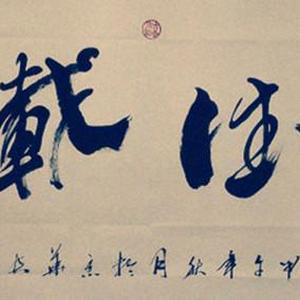 德載
甲午年秋月於京華